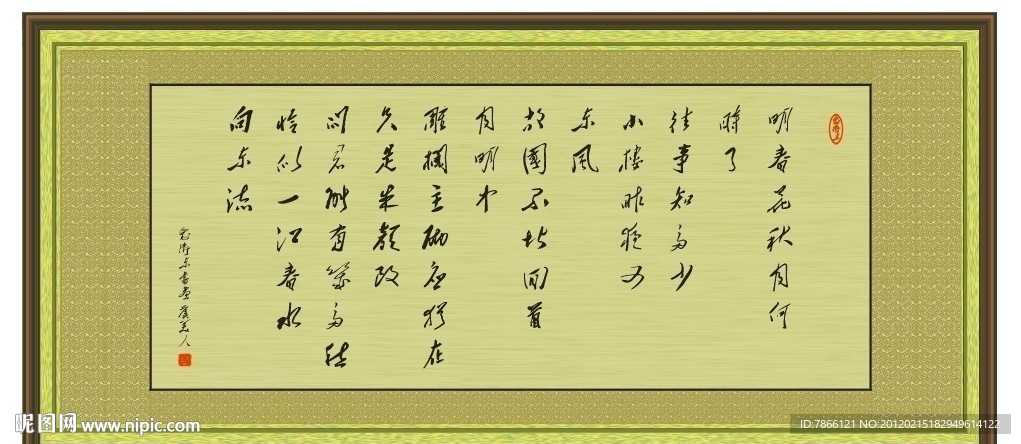 明春花秋月何
時了
往事知多少
小樓昨夜又
东風
故國不堪回首
月明中
雕欄玉砌应犹在
只是朱颜改
问君能有幾多愁
恰似一江春水
向东流
虞美人
昵图网 www.nipic.com
ID:7866121 NO:20120215182949614122